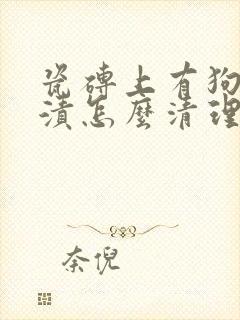 瓷磚上有狗
漬怎麼清理
奈倪